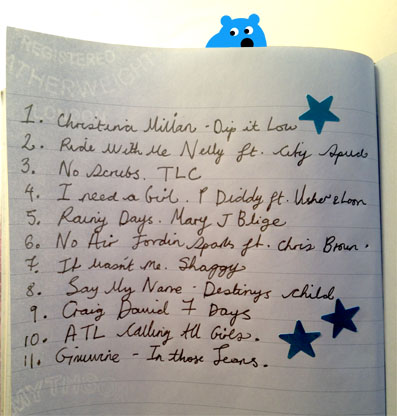 REGISTERED
1. Christina Milian - Dip it Low
2. Ride With Me Nelly ft. City Spud
3. No Scrubs. TLC
4. I need a Girl. P Diddy ft. Usher & Loon
5. Rainy Days. Mary J Blige
6. No Air Jordin Sparks ft. Chris Brown.
7. It Wasn't Me. Shaggy
8. Say My Name - Destinys Child
9. Craig David 7 Days
10. ATL Calling All Girls.
11. Ginuwine - In those Jeans.